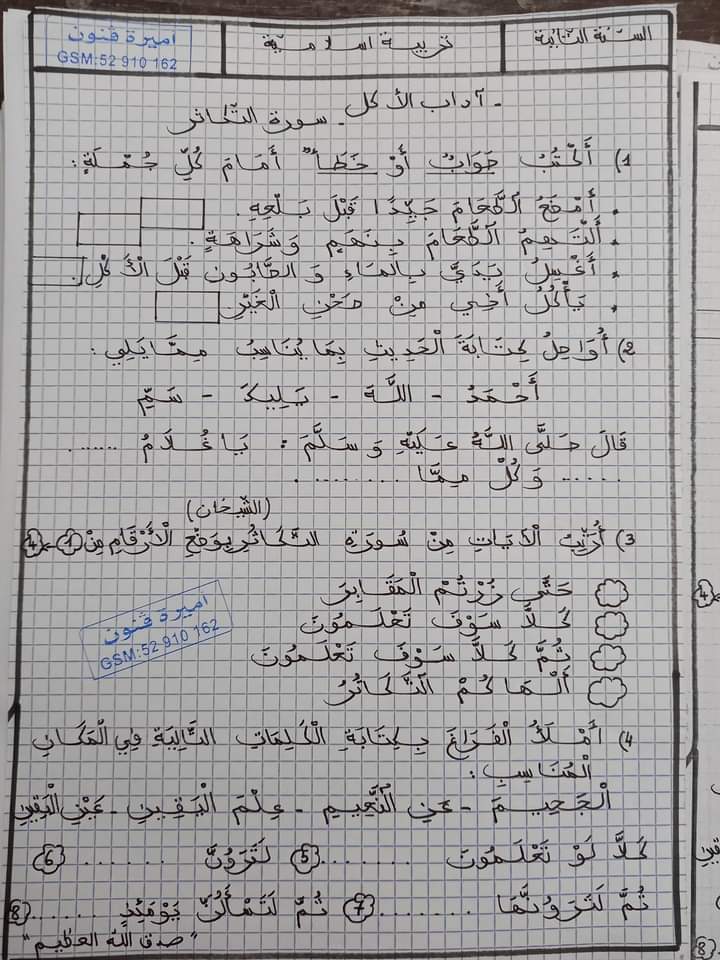 السنة الثانية
تربية اسلامية
اميرة ڤنون
GSM:52 910 162
- آداب الأكل
- سورة التكاثر
1) أَكْتُبُ جَوَابٌ أَوْ خَطَأٌ أَمَامَ كُلِّ جُمْلَةٍ :
. أَمْضَغُ الطَّعَامَ جَيِّدًا قَبْلَ بَلْعِهِ .
. أَلْتَهِمُ الطَّعَامَ بِنَهَمٍ وَشَرَاهَةٍ .
. أَغْسِلُ يَدَيَّ بِالمَاءِ وَ الصَّابُونِ قَبْلَ الْأَكْلِ .
. يَأْكُلُ أَخِي مِنْ صَحْنِ الْغَيْرِ
2) أُوَاصِلُ كِتَابَةَ الْحَدِيثِ بِمَا يُنَاسِبُ مِمَّا يَلِي :
أَحْمَدُ - اللَّهَ - يَلِيكَ - سَمِّ
قَالَ صَلَّى اللهُ عَلَيْهِ وَسَلَّمَ : يَا غُلَامُ .......
...... وَكُلْ مِمَّا .......... .
(الشيخان)
3) أُرَتِّبُ الْآيَاتِ مِنْ سُورَةِ التَّكَاثُرِ بِوَضْعِ الْأَرْقَامِ مِنْ 1 - 4
حَتَّى زُرْتُمُ الْمَقَابِرَ
كَلَّا سَوْفَ تَعْلَمُونَ
ثُمَّ كَلَّا سَوْفَ تَعْلَمُونَ
أَلْهَاكُمُ التَّكَاثُرُ
اميرة ڤنون
GSM:52 910 162
4) أَمْلَأُ الْفَرَاغَ بِكِتَابَةِ الْكَلِمَاتِ التَّالِيَةِ فِي الْمَكَانِ
الْمُنَاسِبِ :
الْجَحِيمَ - عَنِ النَّعِيمِ - عِلْمَ الْيَقِينِ - عَيْنَ الْيَقِينِ
كَلَّا لَوْ تَعْلَمُونَ ......... 5 لَتَرَوُنَّ ......... 6
ثُمَّ لَتَرَوُنَّهَا ......... 7 ثُمَّ لَتُسْأَلُنَّ يَوْمَئِذٍ ...... 8
"صدق الله العظيم"